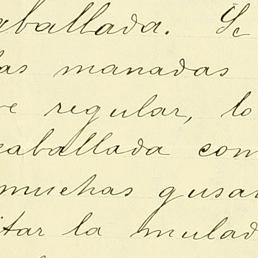 aballada. Se
las manadas
e regular, lo
caballada com
muchas gusan
itar la mulad